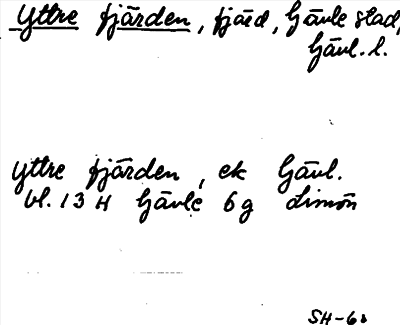 Yttre fjärden, fjärd, Gävle stad,
Gävl. l.
Yttre fjärden, ek Gävl.
bl. 13 H Gävle 6g Limön
SH-6